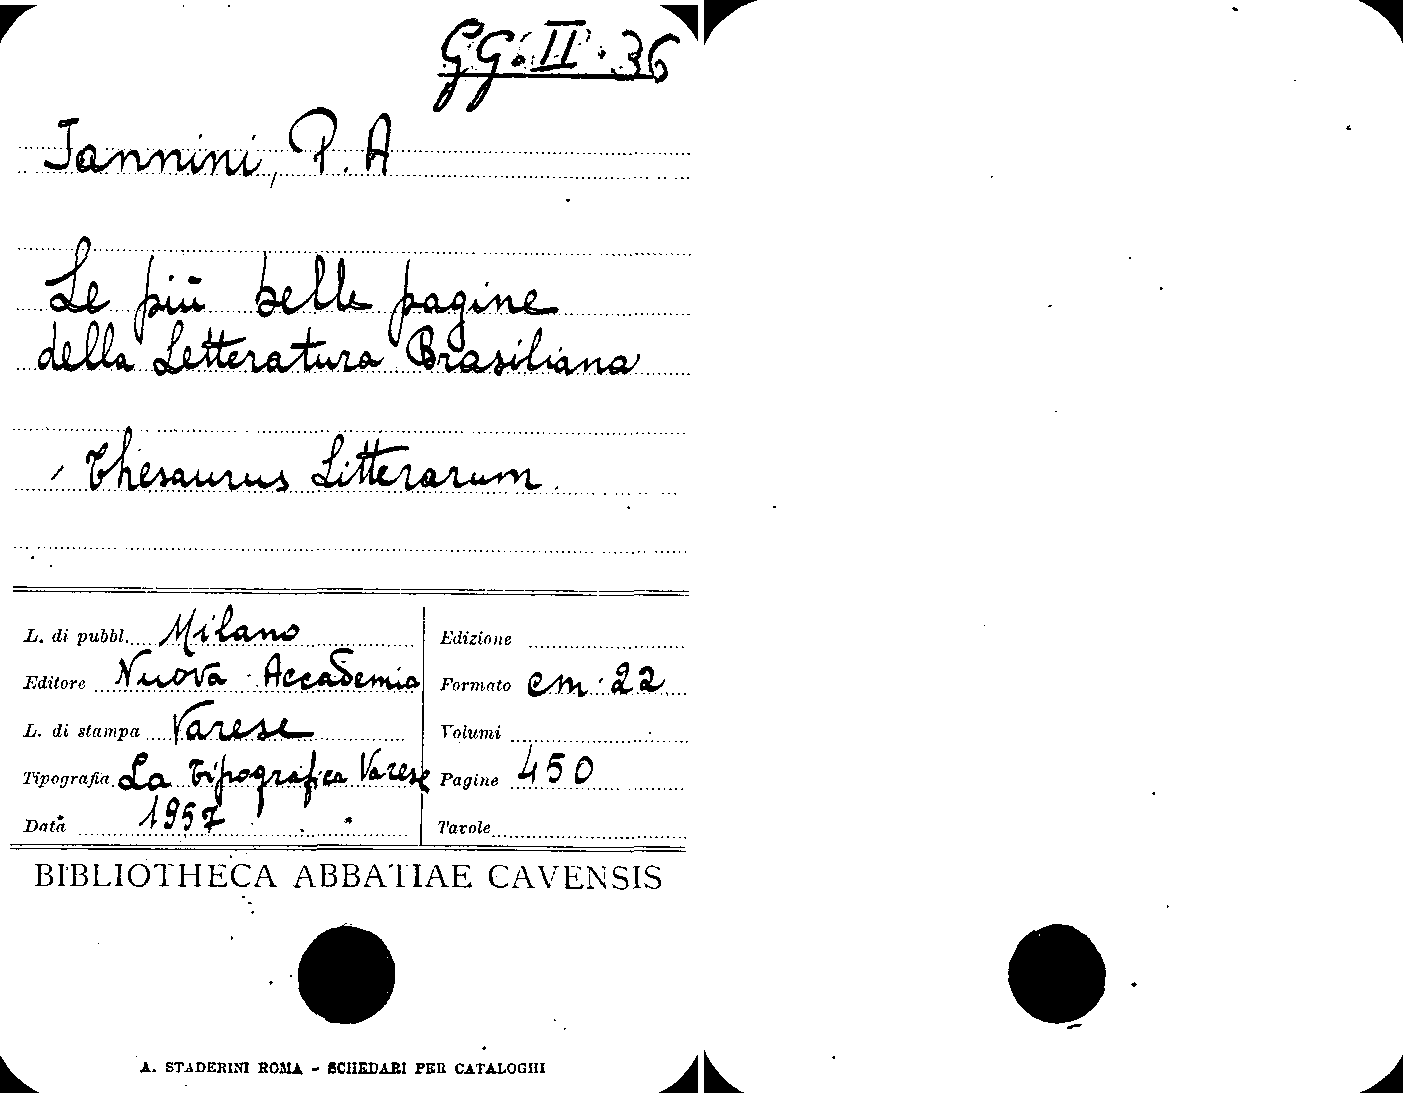 GG. II. 36
Jannini, P. A
Le più belle pagine
della Letteratura Brasiliana
Thesaurus Litterarum.
L. di pubbl. Milano
Editore Nuova Accademia
L. di stampa Varese
Tipografia La Tipografica Varese
Data 1957
Edizione
Formato cm. 22
Volumi
Pagine 450
Tavole
BIBLIOTHECA ABBATIAE CAVENSIS
A. STADERINI ROMA - SCHEDARI PER CATALOGHI